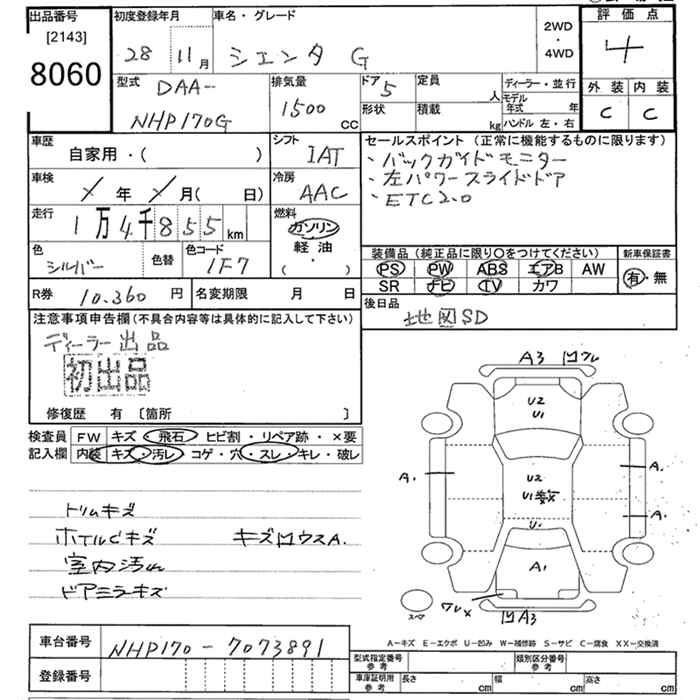 出品番号 初度登録年月 車名・グレード 2WD・4WD 評価点
[2143]
8060
28 11月 シエンタ G 4
型式 DAA- 排気量 ドア 5 定員 人 ディーラー・並行 外装 内装
NHP170G 1500 CC 形状 積載 kg モデル年式 年 C C
ハンドル 左・右
車歴 シフト セールスポイント (正常に機能するものに限ります)
自家用・( ) IAT ・バックガイドモニター
車検 年 月( 日) 冷房 AAC ・左パワースライドドア
走行 1万4千855km 燃料 ・ETC2.0
ガソリン
軽油
( ・ )
色 シルバー 色替 色コード 1F7
装備品 (純正品に限り○をつけてください) 新車保証書
PS PW ABS エアB AW 有・無
SR ナビ TV カワ
R券 10.360円 名変期限 月 日 後日品
地図SD
注意事項申告欄(不具合内容等は具体的に記入して下さい)
ディーラー出品
初出品
修復歴 有 [箇所 ]
検査員 FW キズ・飛石・ヒビ割・リペア跡・×要
記入欄 内装 キズ・汚レ・コゲ・穴・スレ・キレ・破レ
トリムキズ
ホイルCキズ キズ凹ウスA.
室内汚れ
ドアミラーキズ
A3 凹
U2
U1
A. U2 A.
U1
A.
U.
A1
スペア
凹A3
A-キズ E-エクボ U-凹み W-補修跡 S-サビ C-腐食 XX-交換済
車台番号 NHP170-7073891
登録番号
型式指定番号 参考 類別区分番号 参考
車庫証明用 参考 長さ cm 幅 cm 高さ cm